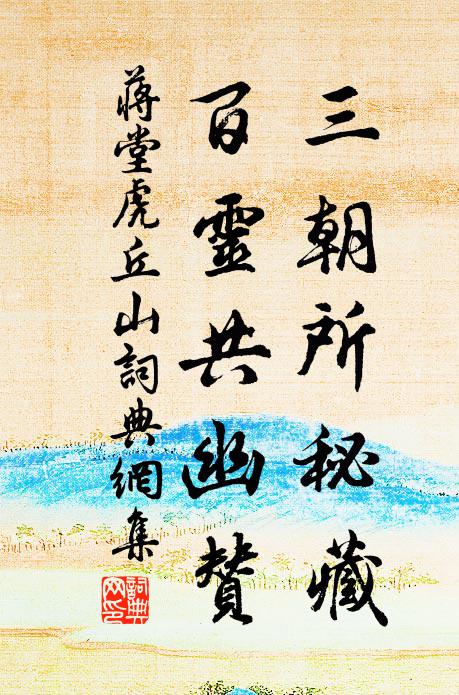 三朝所秘藏
百靈共幽贊
蔣堂虎丘山詞典網集
詞典网印